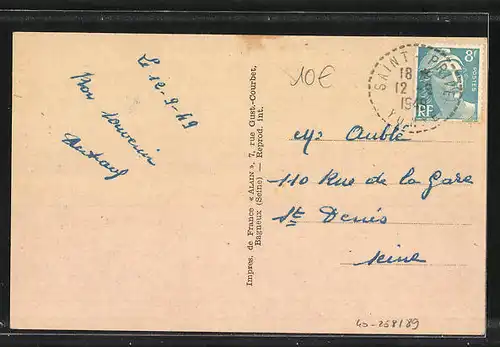 Le 12-9-49
Bon souvenir
10€
SAINT-PRIVÉ
18
12-9
194
YONNE
8F
POSTES
RF
Impres. de France « ALAIN », 7, rue Gust.-Courbet,
Bagneux (Seine) — Reprod. int.
Mr Oublé
110 Rue de la Gare
St Denis
Seine
40-258189